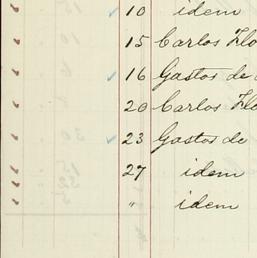 10 idem
15 Carlos Flo
16 Gastos de
20 Carlos Flo
23 Gastos de
27 idem
" idem